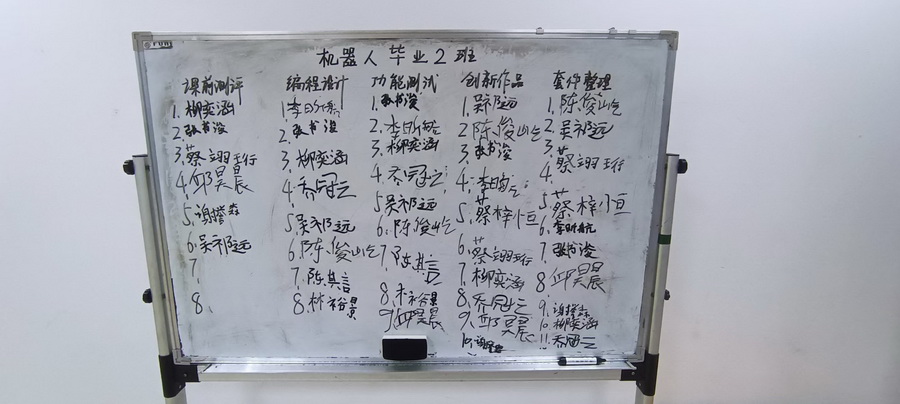 机器人毕业2班
课前测评
1.柳奕涵
2.张书浚
3.蔡翊珩
4.邱昊辰
5.谢擦淼
6.吴祁远
7.
8.
编程设计
1.李
2.张书浚
3.柳奕涵
4.乔冠云
5.吴祁远
6.陈俊屹
7.陈其言
8.林裕景
功能测试
1.张书浚
2.李
3.柳奕涵
4.乔冠云
5.吴祁远
6.陈俊屹
7.陈其言
8.林裕景
9.邱昊辰
创新作品
1.吴祁远
2.陈俊屹
3.张书浚
4.李
5.蔡梓恒
6.蔡翊珩
7.柳奕涵
8.乔冠云
9.邱昊辰
10.谢
套件整理
1.陈俊屹
2.吴祁远
3.蔡翊珩
4.
5.蔡梓恒
6.李时航
7.张书浚
8.邱昊辰
9.谢
10.柳奕涵
11.乔冠云